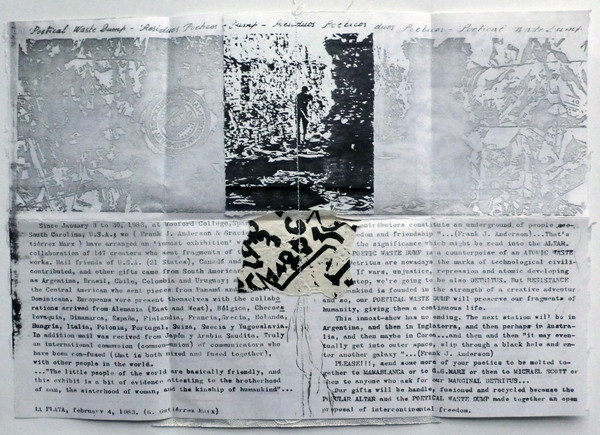 Poetical Waste Dump - Residuos Poeticos - Dump - Residuos Poeticos duos Poeticos - Poetical Waste Dump
Since January 3 to 30, 1983, at Wofford College, Sp
South Carolina, U.S.A., we ( Frank J. Anderson & Graciela
tiérrez Marx ) have arranged an 'inmost exhibition'
collaboration of 147 creators who sent fragments of
works. Mail friends of U.S.A. (21 States), Canadá and
contributed, and other gifts came from South American
as Argentina, Brasil, Chile, Colombia and Uruguay; and
the Central American who sent pieces from Panamá and
Dominicana. Europeans were present themselves with the collabo
rations arrived from Alemania (East and West), Bélgica, Checos
lovaquia, Dinamarca, España, Finlandia, Francia, Grecia, Holanda,
Hungría, Italia, Polonia, Portugal, Suiza, Suecia y Yugoslavia.
In addition mail was received from Japón y Arabia Saudita. Truly
an international comunion (communion) of communicators who
have been com-fused (that is both mixed and fused together),
with other people in the world.
..."The little people of the world are basically friendly, and
this exhibit is a bit of evidence attesting to the brotherhood
of man, the sisterhood of woman, and the kinship of humankind"...
LA PLATA, february 4, 1983. (G. Gutiérrez Marx)
contributors constitute an underground of people
dom and friendship "...(Frank J. Anderson)...That's
the significance which might be read into the ALTAR.
POETIC WASTE DUMP is a counterpulse of an ATOMIC WASTE
detritus are nowadays the marks of technological civili-
of wars, unjustice, repression and atomic developing
stop, we're going to be also DETRITUS. But RESISTANCE
mankind is founded in the strength of a creative adventur
and so, our POETICAL WASTE DUMP will preserve our fragments of
humanity, giving them a continuous life.
This inmost-show has no ending. The next station will be in
Argentina, and then in Inglaterra, and then perhaps in Austra-
lia, and then maybe in Corea...and then and then "it may even-
tually get into outer space, slip through a black hole and en-
ter another galaxy "...(Frank J. Anderson)
PLEASE!!!, send some more of your poetics to be melted to-
gether to MAMABLANCA or to G.G.MARX or then to MICHAEL SCOTT or
then to anyone who ask for our MARGINAL DETRITUS...
Our gifts will be handle, fusioned and recycled because the
POPULAR ALTAR and the POETICAL WASTE DUMP made together an open
proposal of intercontinental freedom.